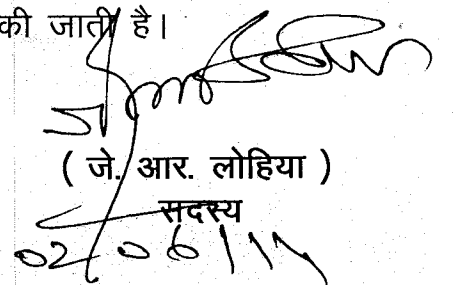 की जाती है।
( जे. आर. लोहिया )
सदस्य
02/06/14